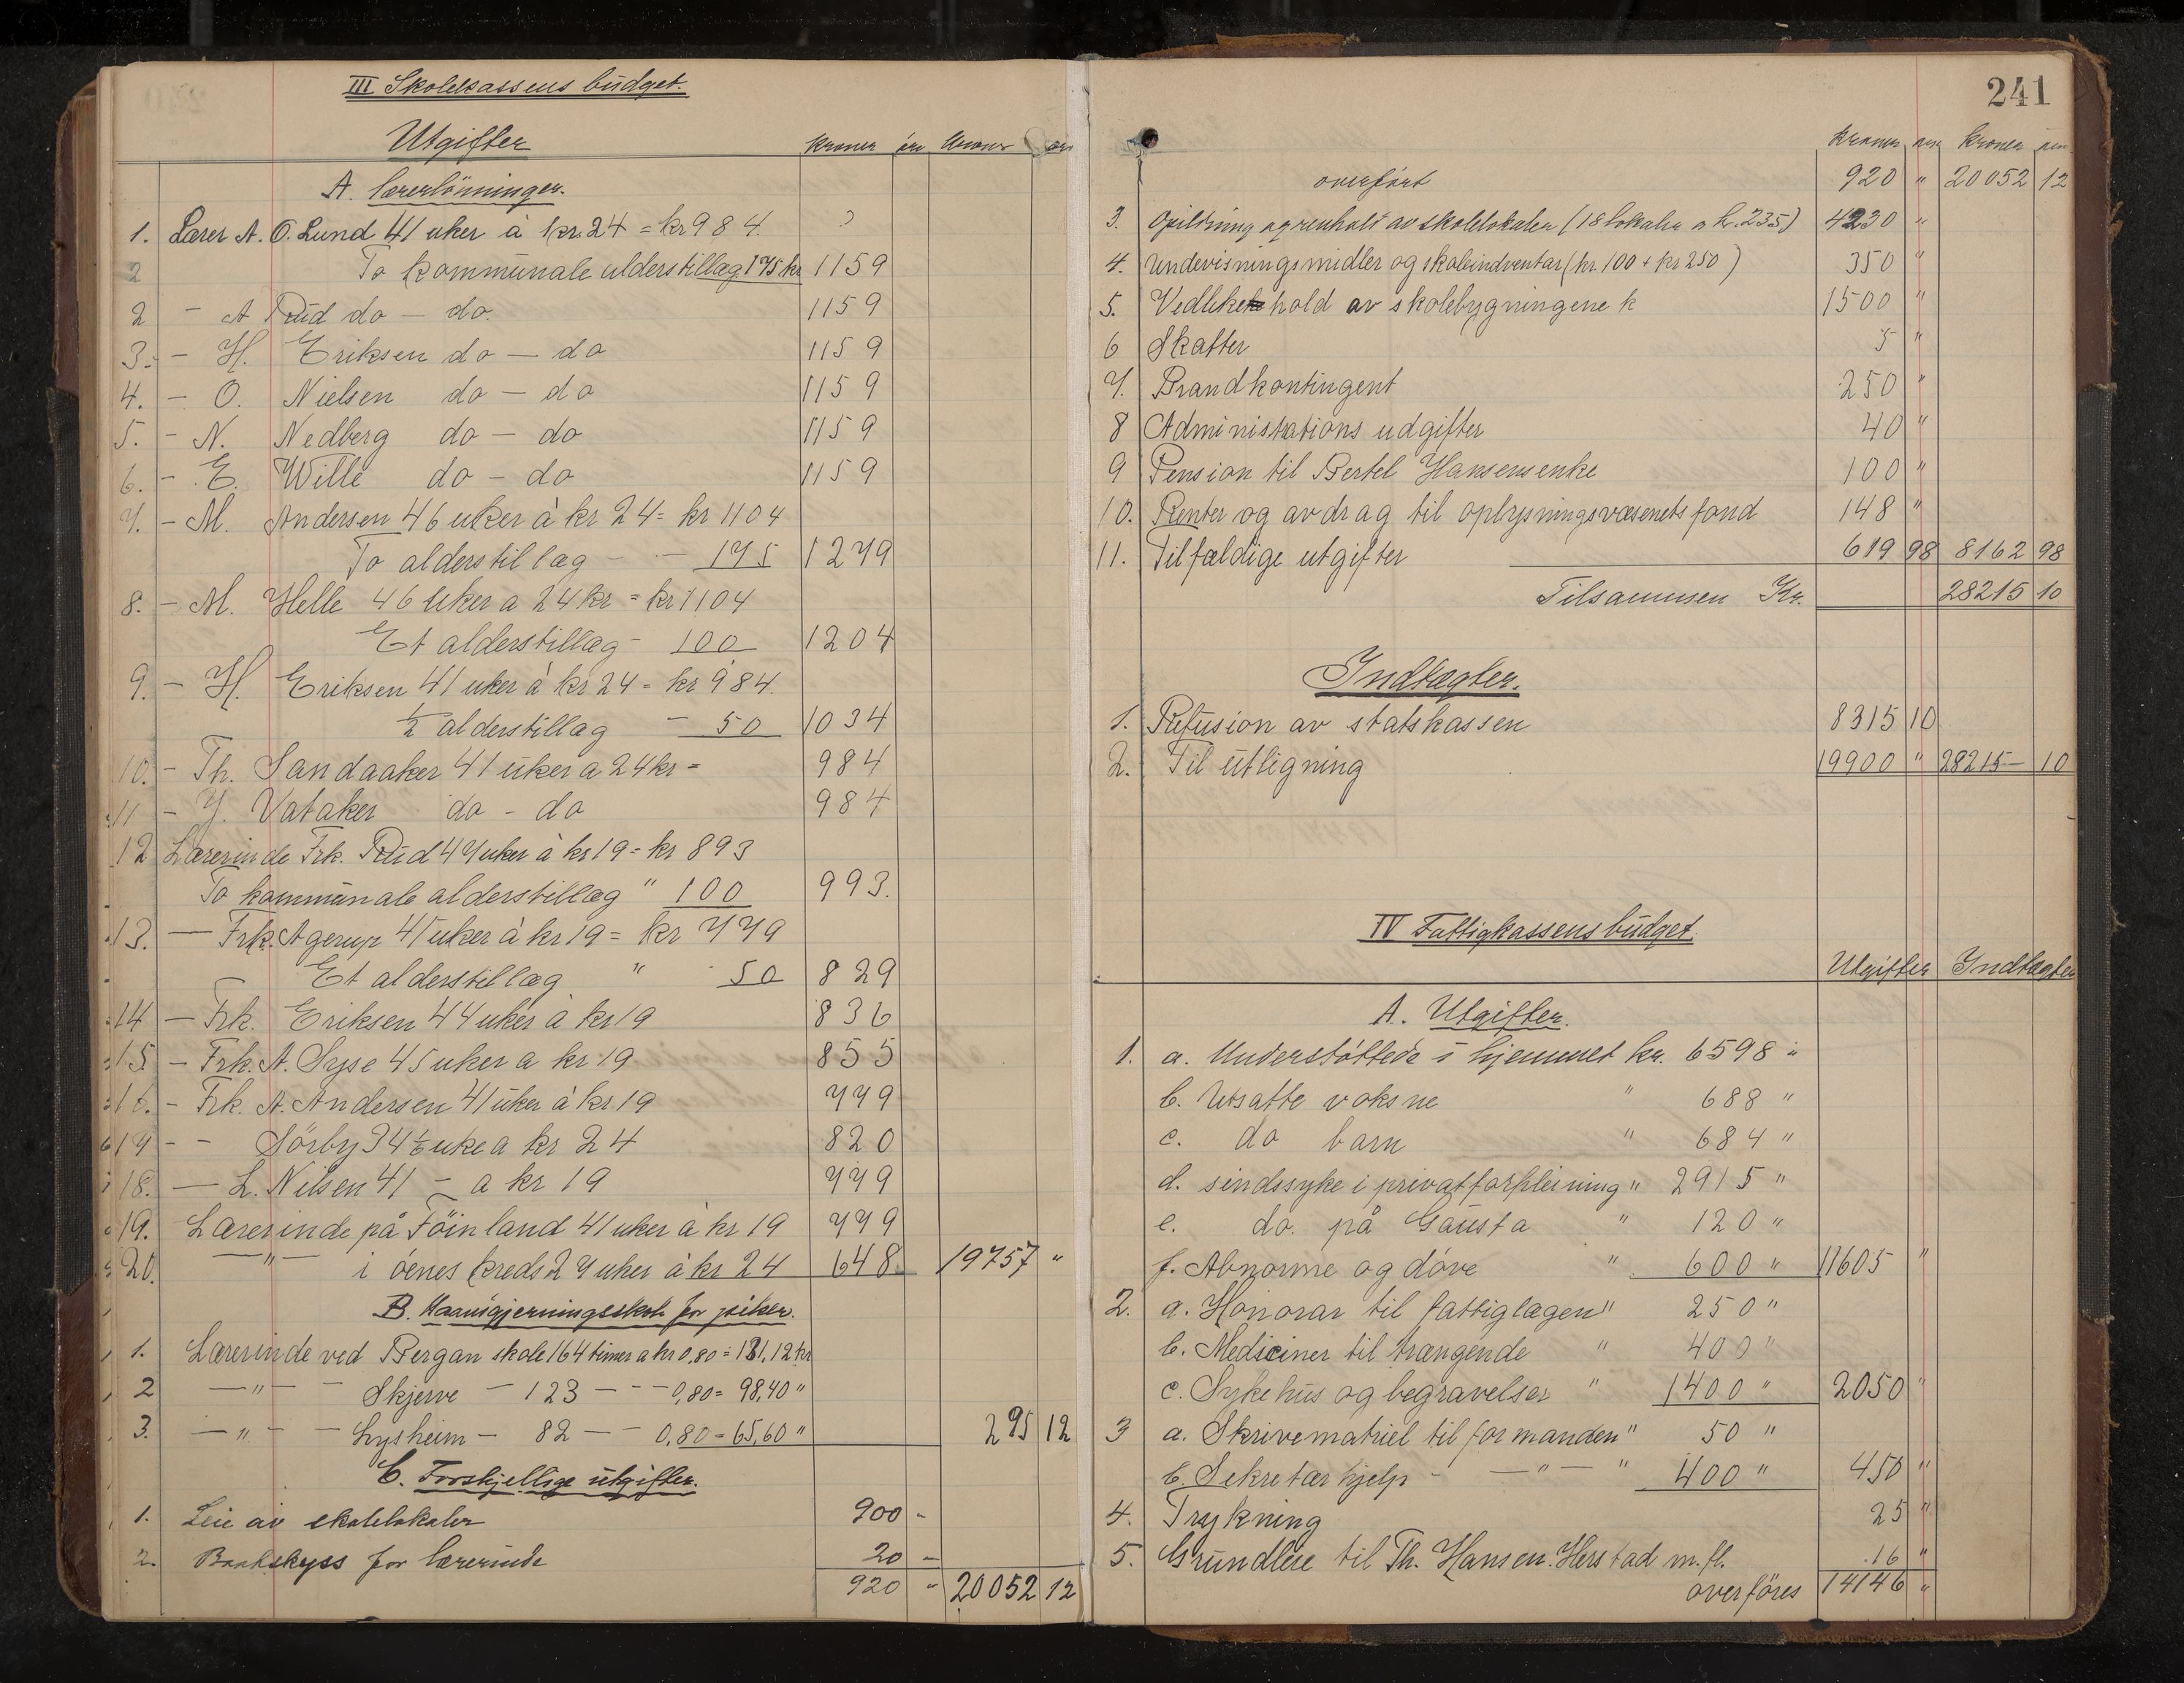 III Skolekassens budget.
Utgifter
Kroner øre Kroner øre
A. Lærerlönninger.
1. Lærer A. O. Lund 41 uker à kr. 24 = kr 984.
2 To kommunale alderstillæg 175 kr 1159
2 - A Rud do - do. 1159
3. - H. Eriksen do - do 1159
4. - O. Nielsen do - do 1159
5. - N. Nedberg do - do 1159
6. - E. Wille do - do 1159
7. - M. Andersen 46 uker à kr 24 = kr 1104
To alderstillæg - - 175 1279
8. - M. Helle 46 uker a 24 kr = kr 1104
Et alderstillæg - 100 1204
9. - H. Eriksen 41 uker à kr 24 = kr 984.
½ alderstillæg - 50 1034
10. - Th. Sandaaker 41 uker a 24 kr = 984
11 - Y. Vataker do - do 984
12 Lærerinde Frk. Rud 47 uker à kr 19 = kr 893
To kommunale alderstillæg " 100 993.
13. - Frk. Agerup 41 uker à kr 19 = kr 779
Et alderstillæg " 50 829
14 - Frk. Eriksen 44 uker à kr 19 836
15 - Frk. A. Syse 45 uker a kr 19 855
16. - Frk. A. Andersen 41 uker à kr 19 779
17 - - Sörby 34 1/6 uke a kr 24 820
18. - L. Nilsen 41 - a kr 19 779
19. Lærerinde på Föinland 41 uker à kr 19 779
20. - " - i óenes kreds 27 uker à kr 24 648. 19757 "
B. Haandgjerningsskole for piker.
1. Lærerinde ved Bergan skole 164 timer a kr 0,80 = 131,12 kr
2 - " - - Skjerve - 123 - - - 0,80 = 98,40 "
3. - " - - Lysheim - 82 - - 0,80 = 65,60 " 295 12
C. Forskjellige utgifter.
1. Leie av skolelokaler 900 -
2. Baatskyss for lærerinde 20 -
920 " 20052 12
241
Kroner øre Kroner øre
overført 920 " 20052 12
3. Opildning og renhold av skolelokaler (18 lokaler a kr. 235) 4230 "
4. Undevisningsmidler og skoleindventar (kr. 100 + kr 250) 350 "
5. Vedlikehold av skolebygningene k 1500 "
6 Skatter 5 "
7. Brandkontingent 250 "
8 Administrations udgifter 40 "
9 Pension til Bertel Hansens enke 100 "
10. Renter og avdrag til oplysningsvæsenets fond 148 "
11. Tilfældige utgifter 619 98 8162 98
Tilsammen Kr. 28215 10
Indtægter.
1. Refusion av statskassen 8315 10
2. Til utligning 19900 " 28215 - 10
IV Fattigkassens budget.
Utgifter Indtægter
A. Utgifter.
1. a. Understöttede i hjemmet kr. 6598 "
b. Utsatte voksne " 688 "
c. do barn " 684 "
d. sindssyke i privatforpleining " 2915 "
e. do. på Gausta " 120 "
f. Abnorme og döve " 600 " 11605 "
2. a. Honorar til fattiglægen " 250 "
b. Mediciner til trængende " 400 "
c. Sykehus og begravelser " 1400 " 2050 "
3 a. Skrivematriel til formanden " 50 "
b. Sekretær hjelp - - " - " 400 " 450 "
4. Trykning 25 "
5. Grundleie til Th. Hansen. Herstad m. fl. 16 "
overföres 14146 "